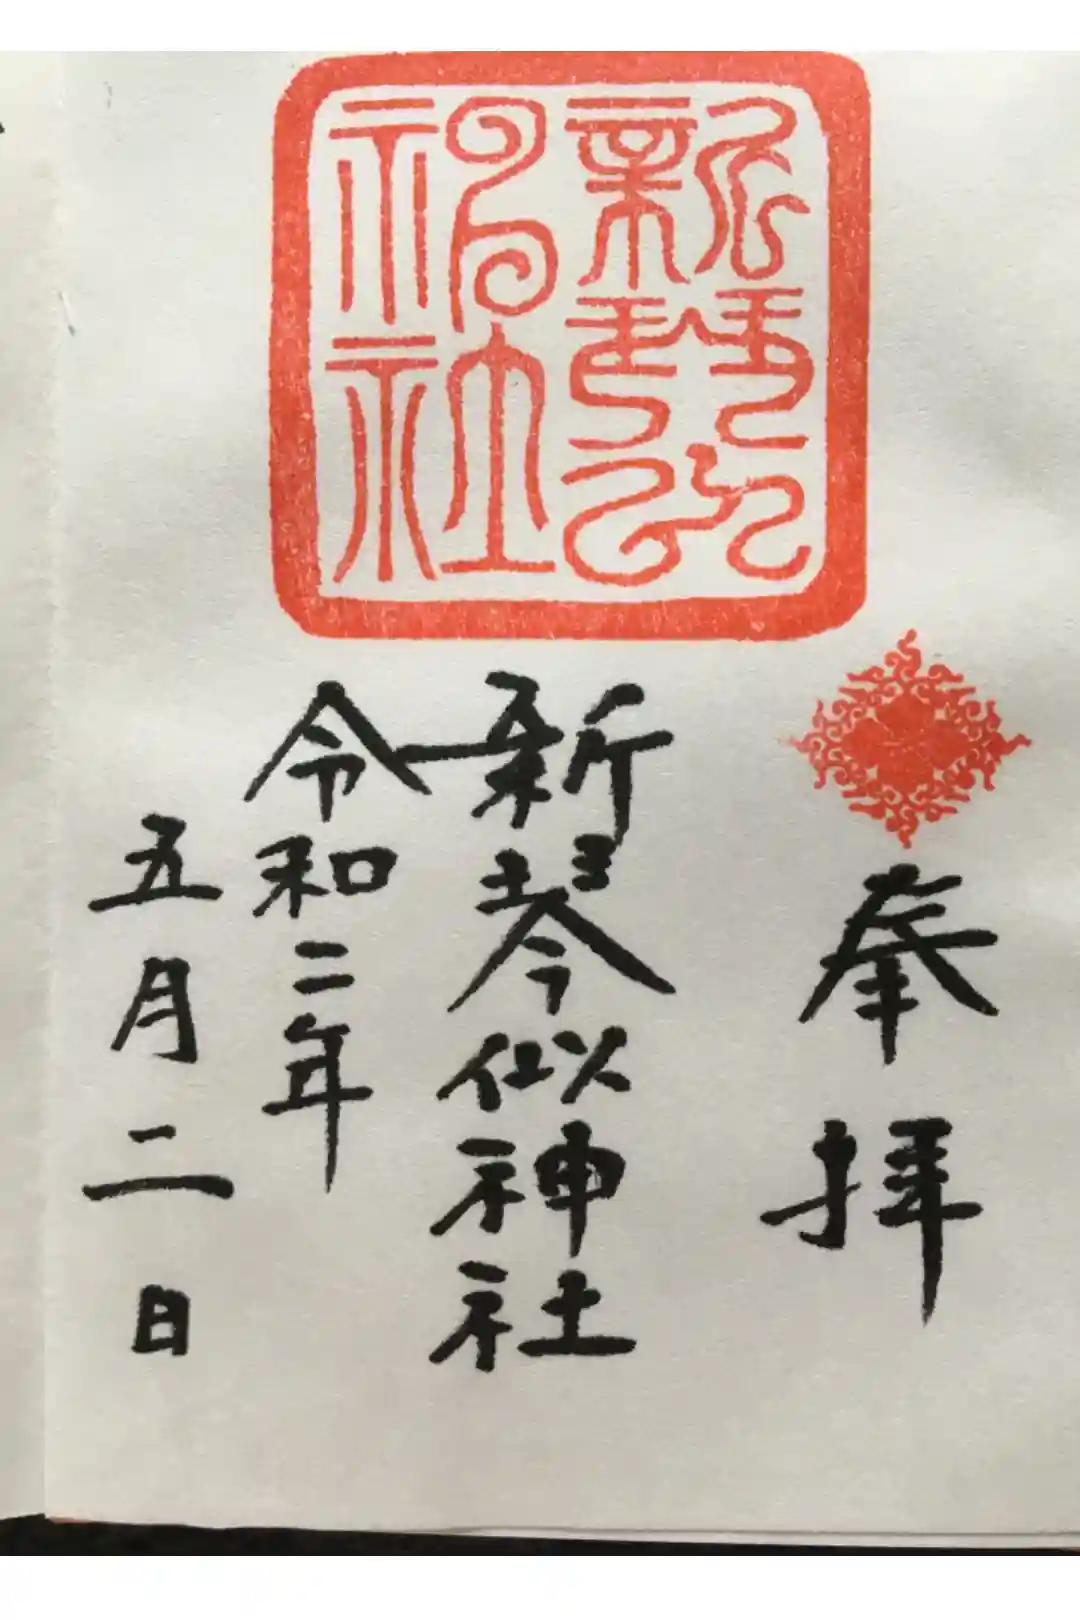 奉拝
新琴似神社
令和二年
五月二日
新琴似
神社